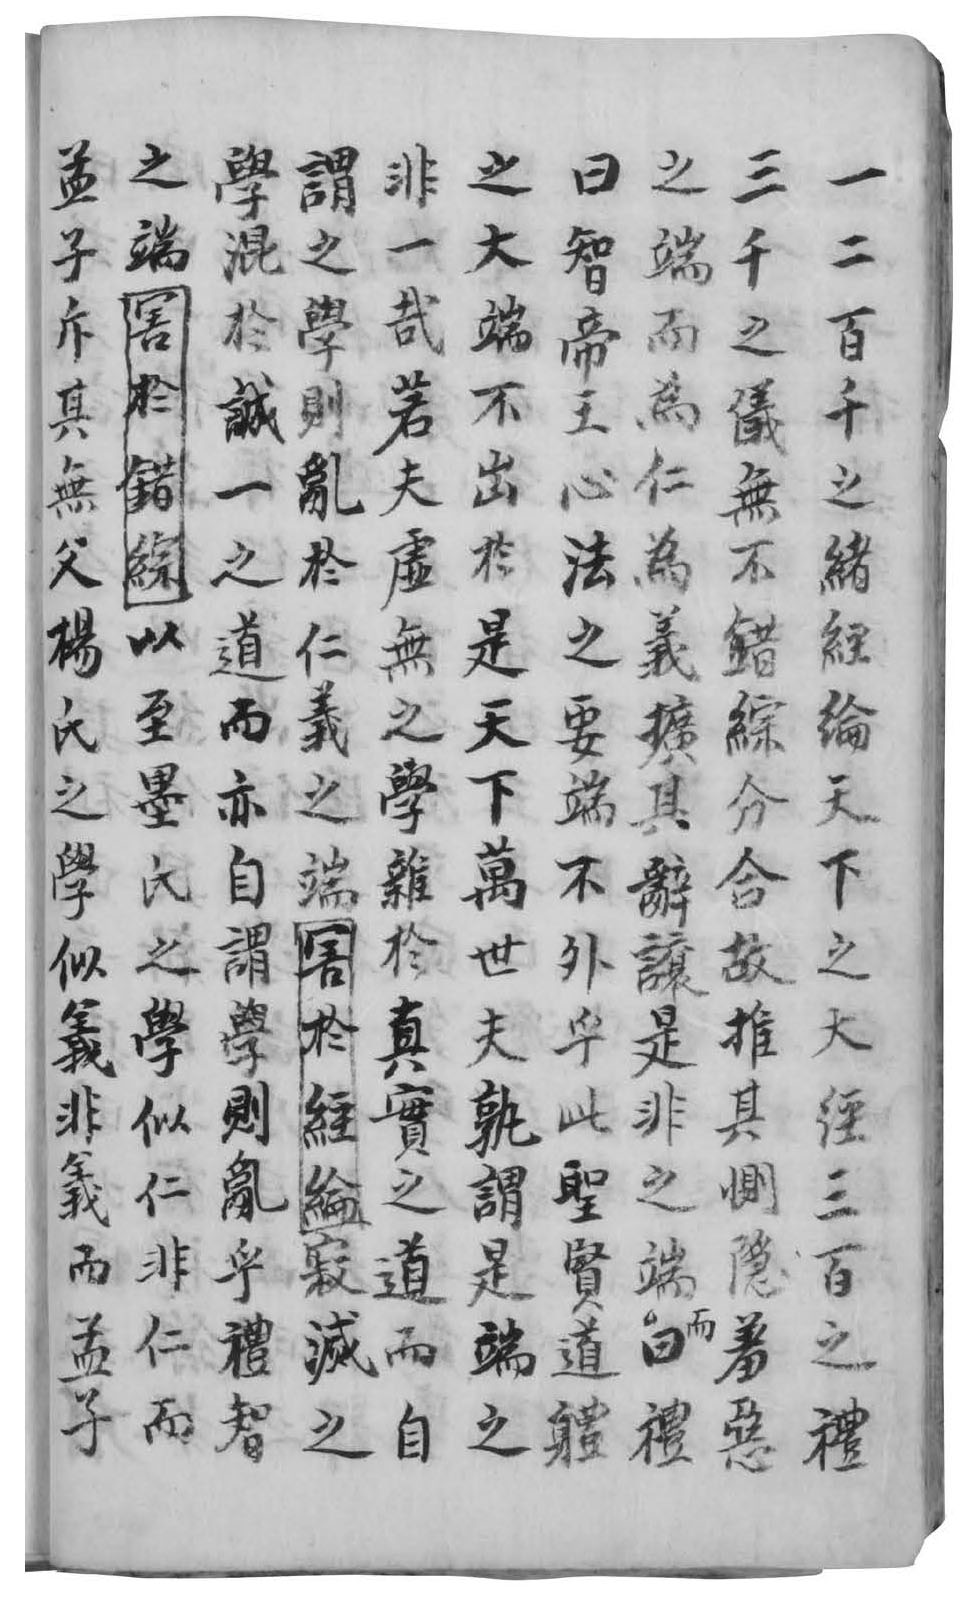 一二百千之緖經綸天下之大經三百之禮
三千之儀無不錯綜分合故推其惻隱羞惡
之端而為仁為義擴其辭讓是非之端而曰禮
曰智帝王心法之要端不外乎此聖賢道軆
之大端不出於是天下萬世夫孰謂是端之
非一哉若夫虛無之學雜於真實之道而自
謂之學則亂於仁義之端害於經綸寂滅之
學混於誠一之道而亦自謂學則亂乎禮智
之端害於錯綜以至墨氏之學似仁非仁而
孟子斥其無父楊氏之學似義非義而孟子